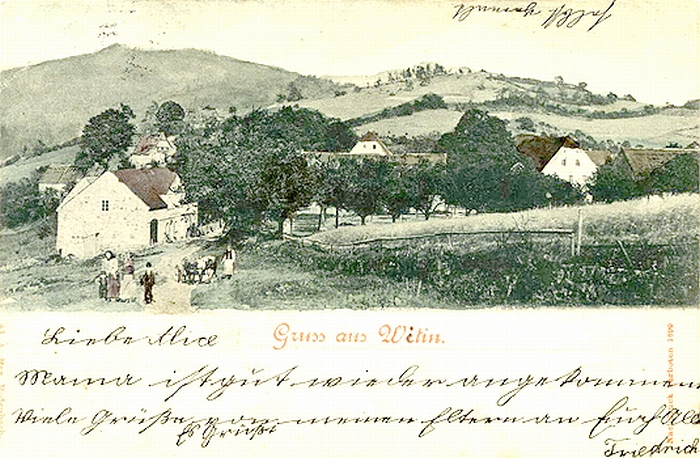 Liebe Alice
Gruss aus Witin.
Mama ist gut wieder angekommen
Viele Grüße von meinen Eltern an Euch Alle
Es Grüßt
Friedrich